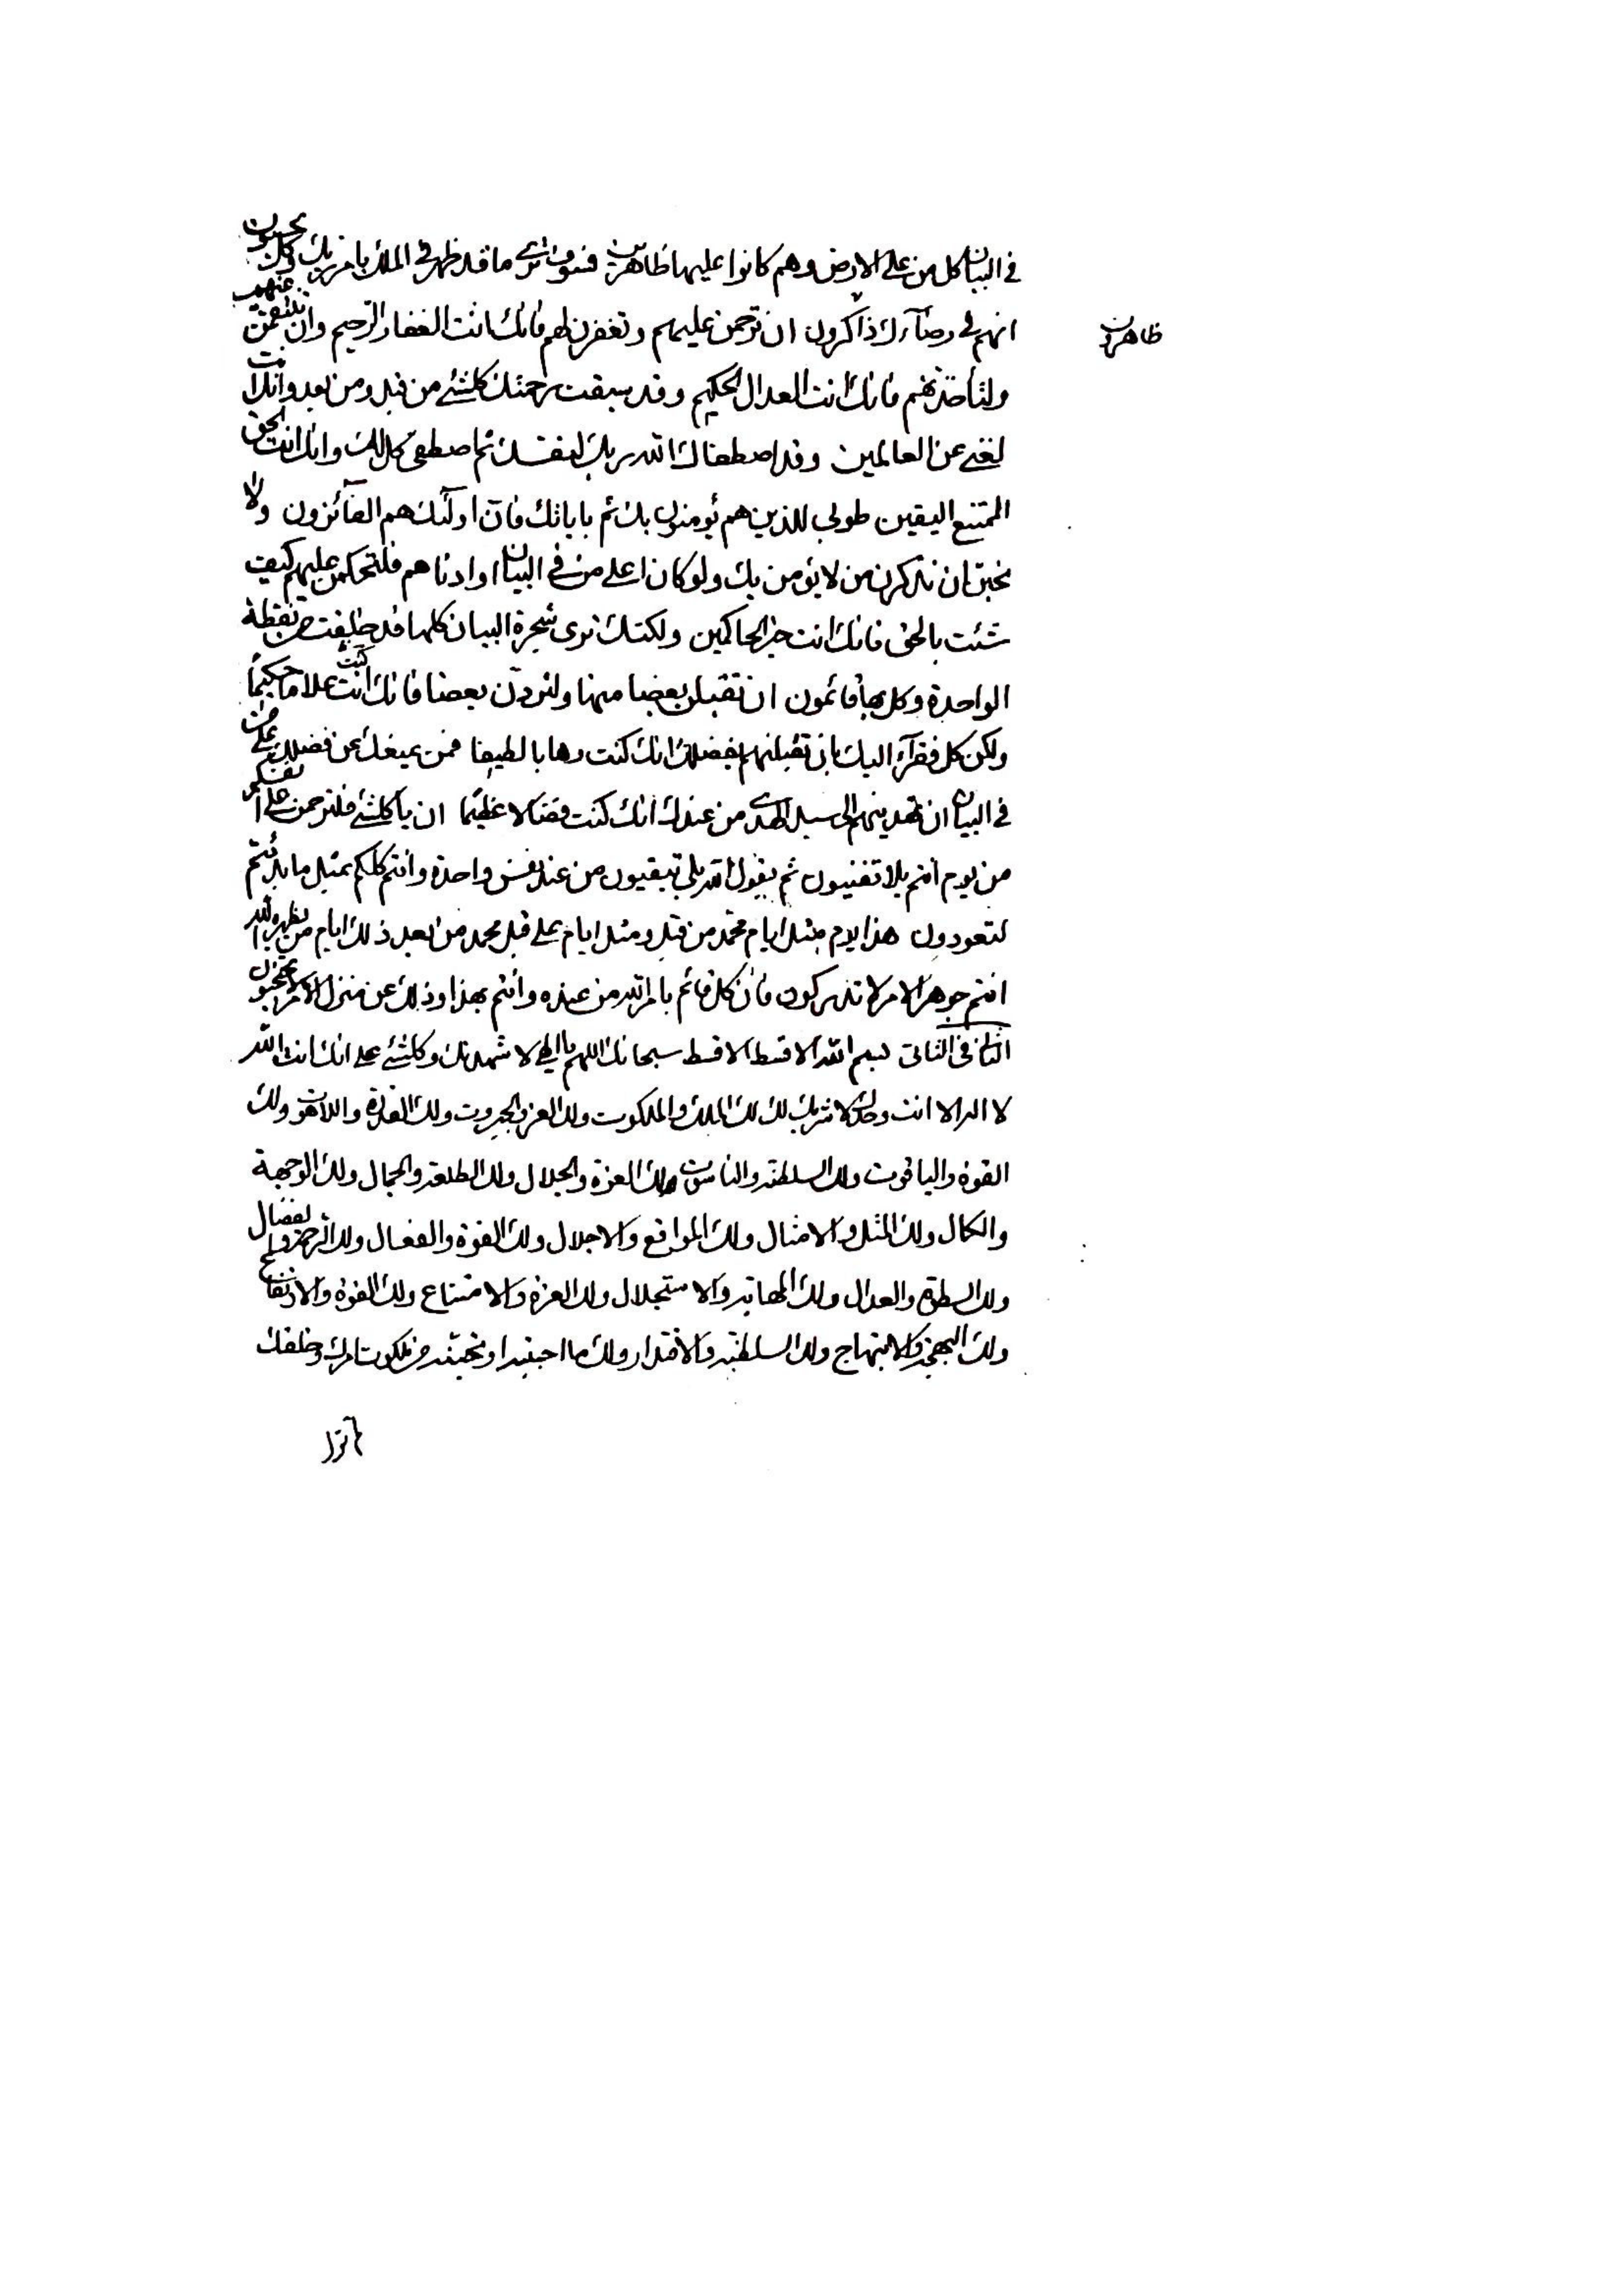 في البيان كل من على الارض وهم كانوا عليها ظاهرين فسوف ترى ما قد ظهر في الملك بامر ربك وكل يحسبون
انهم في رضآءك ذاكرون ان ترحمن عليهم وتغفرن لهم فانك انت الغفار الرحيم وان تنتقمن عنهم
ظاهرون
ولتأخذنهم فانك انت العدال الحكيم وقد سبقت رحمتك كلشئ من قبل ومن بعد وانك انت
لغني عن العالمين وقد اصطفاك الله ربك لنفسك ثم اصطفى كل لك وانك انت الحق
الممتنع اليقين طوبى للذين هم يؤمنون بك ثم باياتك فان اولئك هم الفآئزون ولا
تحبن ان تذكرن من لا يؤمن بك ولو كان اعلى من في البيان او ادناهم فلتحكمن عليهم كيف
شئت بالحق فانك انت خير الحاكمين ولكنك ترى شجرة البيان كلها قد خلقت من نقطة
الواحدة وكل بها قائمون ان تقبلن بعضا منها ولتردن بعضا فانك انت كنت علاما حكيما
ولكن كل فقرآء اليك بان تقبلنهم بفضلك انك كنت وهابا لطيفا فمن يمنعك عن فضلك على من
في البيان ان تهدينهم الى سبل الهدى من عندك انك كنت فضالا عظيما ان يا كلشئ فلترحمن على انفسكم
من يوم انتم بلا تفنيون ثم يقول الله بلى تبقيون من عند نفس واحدة وانتم كلكم بمثل ما بدئتم
لتعودون هذا يوم مثل ايام محمد من قبل ومثل ايام على قبل محمد من بعد ذلك ايام من يظهره الله
انتم جوهر الامر لا تدركون فان كل قائم بامر الله من عنده وانتم بهذا وذلك عن منزل الامر لا تحتجبون
الثاني في الثاني بسم الله الاقسط الاقسط سبحانك اللهم يا الهي لاشهدنك وكلشئ على انك انت الله
لا اله الا انت وحدك لا شريك لك لك الملك والملكوت ولك العز والجبروت ولك القدرة واللاهوت ولك
القوة والياقوت ولك السلطنة والناسوت ولك العزة والجلال ولك الطلعة والجمال ولك الوجهة
والكمال ولك المثل والامثال ولك المواقع والاجلال ولك القوة والفعال ولك الرحمة والفضال
ولك السطوة والعدال ولك المهابة والاستجلال ولك العزة والامتناع ولك القوة والارتفاع
ولك البهجة والابتهاج ولك السلطنة والاقتدار ولك ما احببته او تحبنه من ملكوت امرك وخلقك